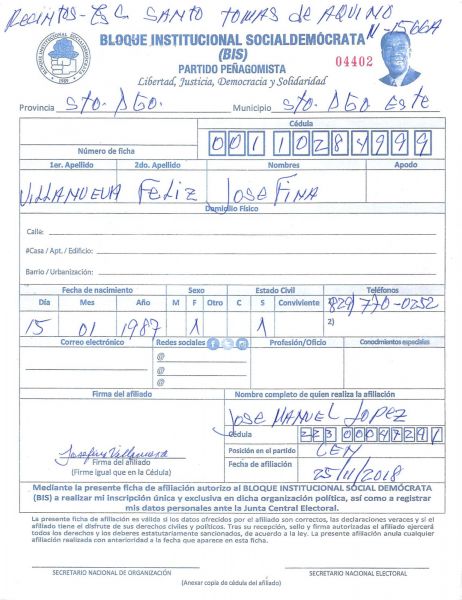 Recintos - Esc. SANTO TOMAS de AQUINO
N-1566A
BLOQUE INSTITUCIONAL SOCIALDEMÓCRATA
(BIS)
04402
PARTIDO PEÑAGOMISTA
Libertad, Justicia, Democracia y Solidaridad
Provincia Sto. Dgo. Municipio Sto. Dgo Este
Cédula
Número de ficha 001 1028499 9
1er. Apellido 2do. Apellido Nombres Apodo
VILLANUEVA Feliz JoseFINA
Domicilio Físico
Calle:
#Casa / Apt. / Edificio:
Barrio / Urbanización:
Fecha de nacimiento Sexo Estado Civil Teléfonos
Día Mes Año M F Otro C S Conviviente 1) 829/770-0252
15 01 1987 1 1 2)
Correo electrónico Redes sociales Profesión/Oficio Conocimientos especiales
@
@
@
Firma del afiliado Nombre completo de quien realiza la afiliación
JOSE MANUEL LOPEZ
Cédula 223 000
Josefina Villanueva
Firma del afiliado
(Firme igual que en la Cédula)
Posición en el partido CEN
Fecha de afiliación 25/11/2018
Mediante la presente ficha de afiliación autorizo al BLOQUE INSTITUCIONAL SOCIAL DEMÓCRATA
(BIS) a realizar mi inscripción única y exclusiva en dicha organización política, así como a registrar
mis datos personales ante la Junta Central Electoral.
La presente ficha de afiliación es válido si los datos ofrecidos por el afiliado son correctos, las declaraciones veraces y si el
afiliado tiene el disfrute de sus derechos civiles y políticos. Tras su recepción, sello y firma autorizada el afiliado ejercerá
todos los derechos y los deberes estatutariamente sancionados, de acuerdo a la ley. La presente afiliación anula cualquier
afiliación realizada con anterioridad a la fecha que aparece en esta ficha.
SECRETARIO NACIONAL DE ORGANIZACIÓN SECRETARIO NACIONAL ELECTORAL
(Anexar copia de cédula del afiliado)